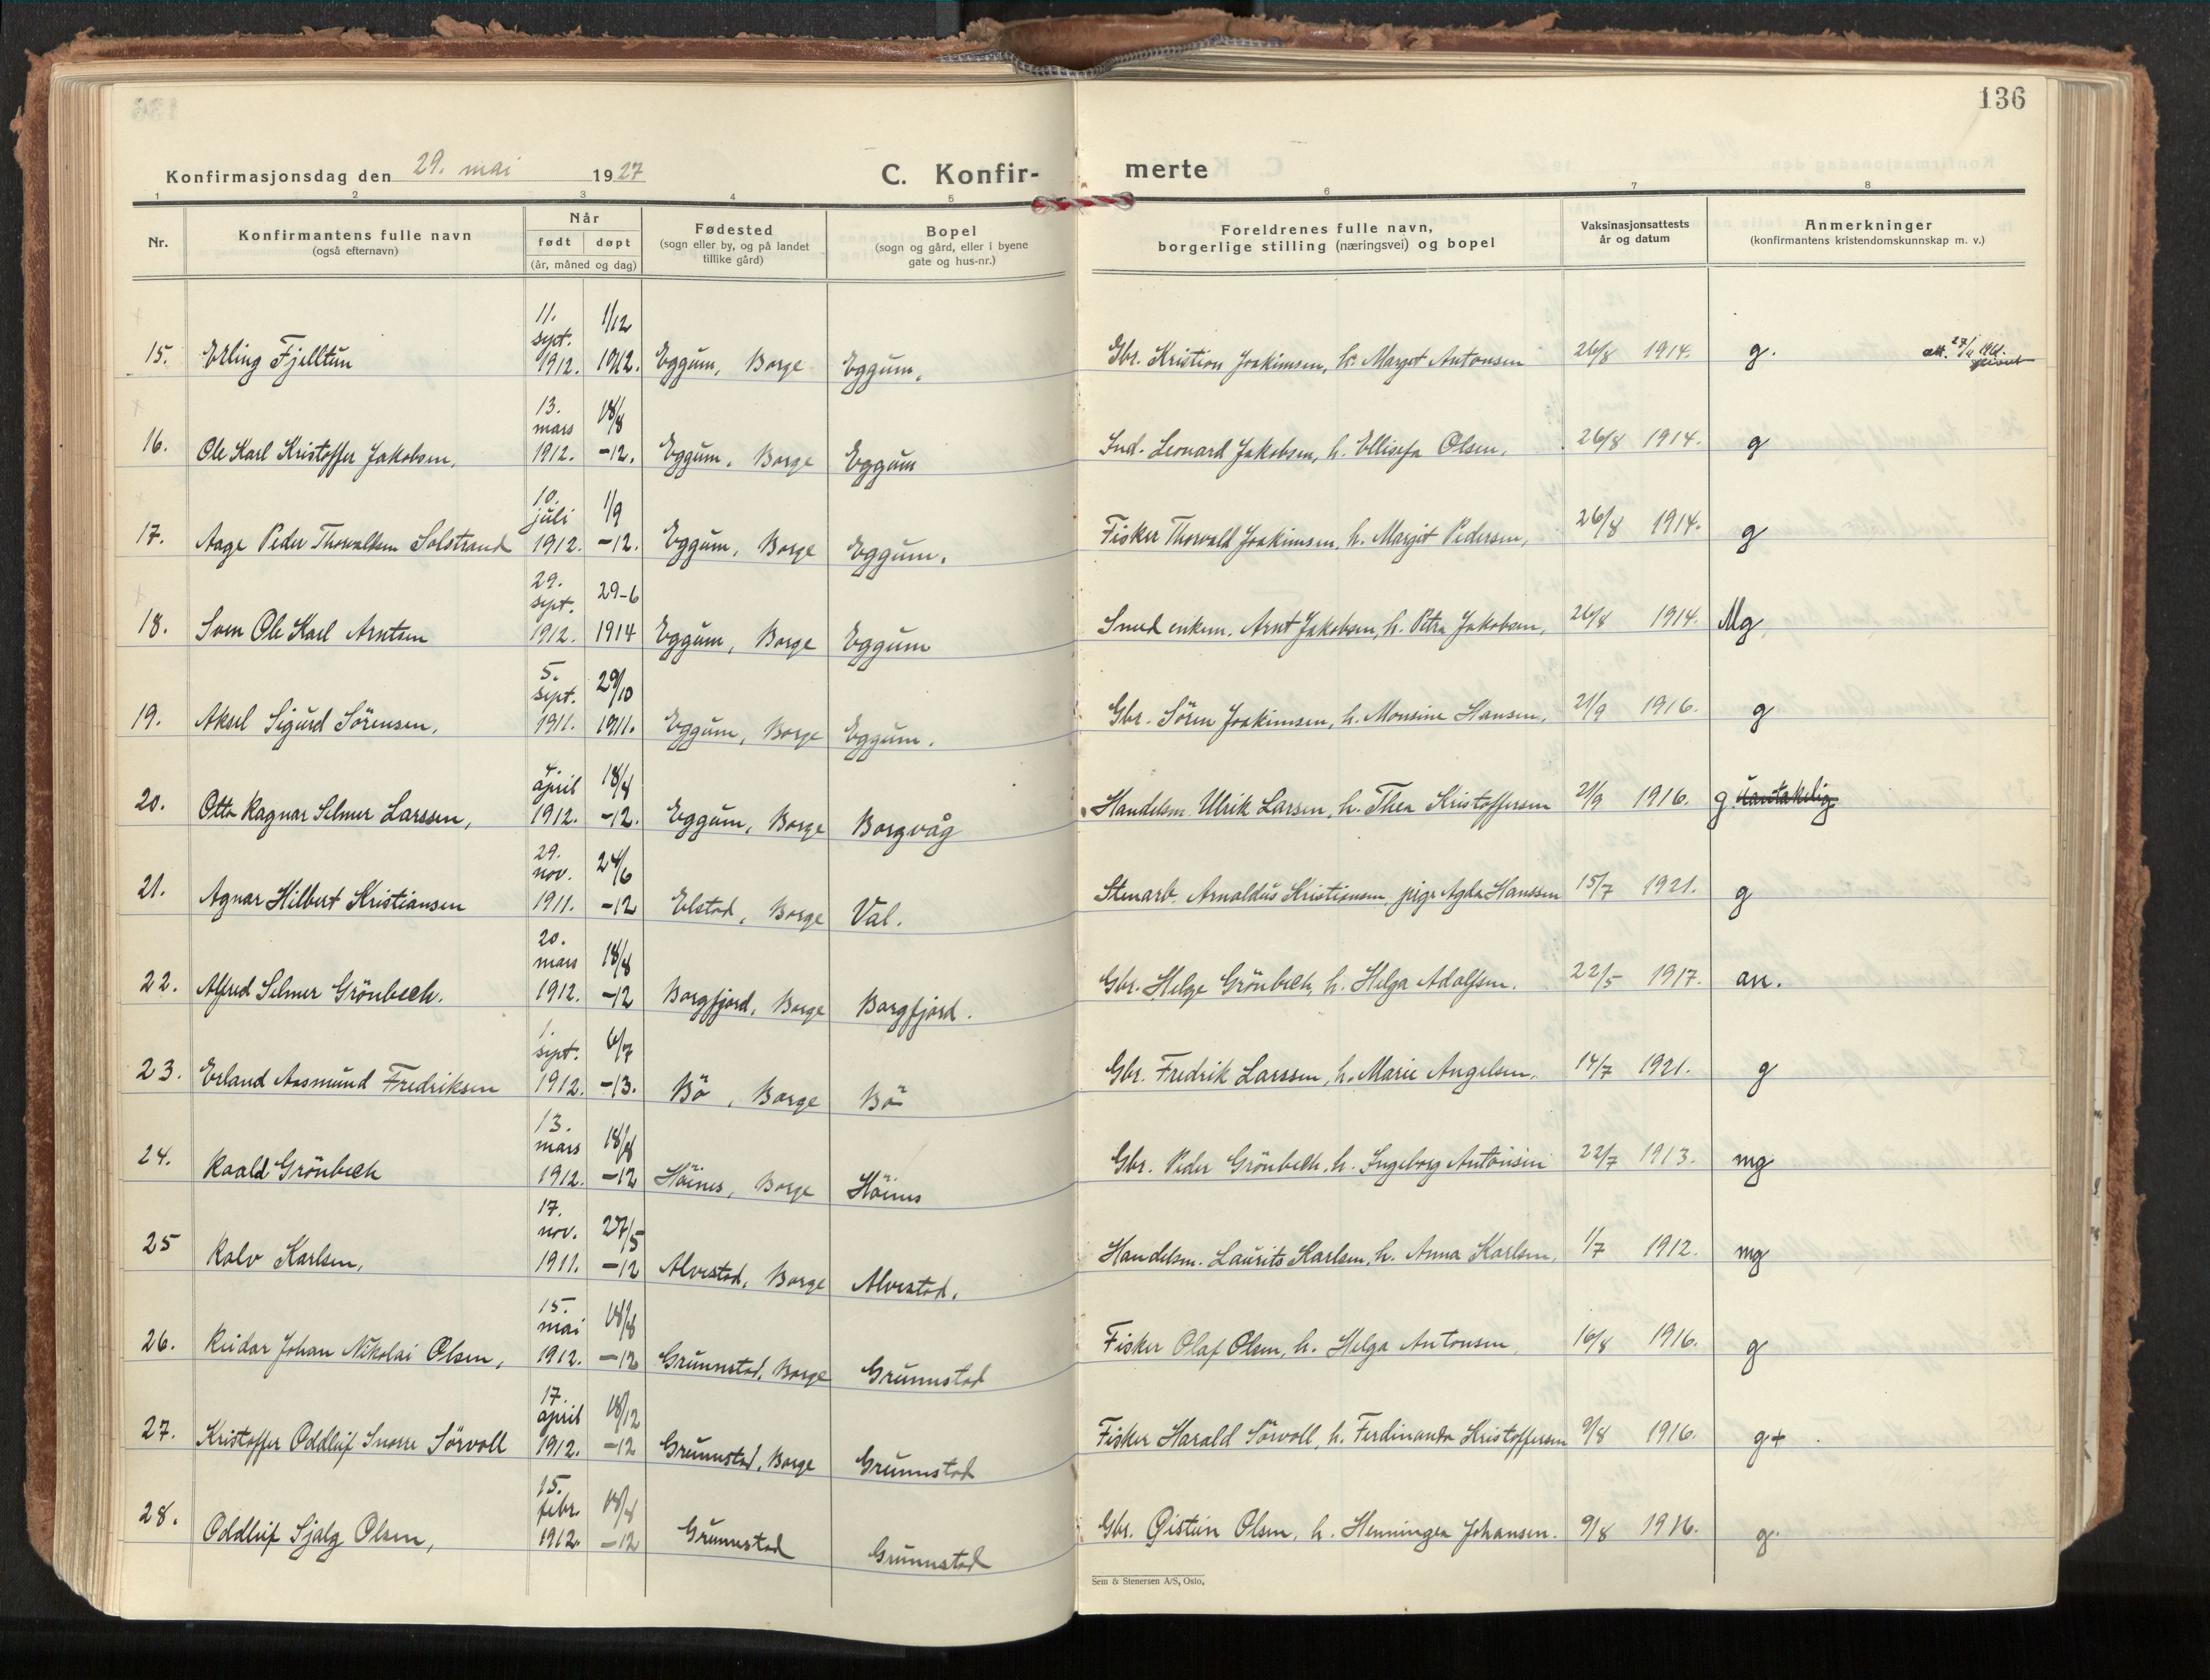 136
Konfirmasjonsdag den 29. mai 1927 C. Konfirmerte
1 2 3 4 5 6 7 8
Nr. Konfirmantens fulle navn (også efternavn) Når født døpt (år, måned og dag) Fødested (sogn eller by, og på landet tillike gård) Bopel (sogn og gård, eller i byene gate og hus-nr.) Foreldrenes fulle navn, borgerlige stilling (næringsvei) og bopel Vaksinasjonsattests år og datum Anmerkninger (konfirmantens kristendomskunnskap m. v.)
15. Erling Fjelltun 11. sept. 1912. 1/12 1912. Eggum, Borge Eggum. Gbr. Kristian Joakimsen, h. Margit Antonsen 26/8 1914. g. att. 27/
16. Ole Karl Kristoffer Jakobsen, 13. mars 1912. 18/8 -12. Eggum, Borge Eggum Snd. Leonard Jakobsen, h. Ellisefa Olsen. 26/8 1914. g
17. Aage Peder Thorvaldsen Solstrand 10. juli 1912. 1/9 -12. Eggum, Borge Eggum. Fisker Thorvald Joakimsen, h. Margit Pedersen, 26/8 1914. g
18. Sven Ole Karl Arntsen 29. sept. 1912. 29-6 1914 Eggum, Borge Eggum Smed enkem. Arnt Jakobsen, h. Petra Jakobsen, 26/8 1914. Mg
19. Aksel Sigurd Sörensen. 5. sept. 1911. 29/10 1911. Eggum, Borge Eggum. Gbr. Sören Joakimsen, h. Monsine Hansen, 21/9 1916. g
20. Otto Ragnar Selmer Larssen, 4. april 1912. 18/8 -12. Eggum, Borge Borgvåg Handelsm. Ulrik Larsen, h. Thea Kristoffersen 21/9 1916. g
21. Agnar Hilbert Kristiansen 29. nov. 1911. 24/6 -12 Elstad, Borge Val. Stenarb. Arnoldus Kristiansen, pige Agda Hanssen 15/7 1921. g
22. Alfred Selmer Grönbech. 20. mars 1912. 18/8 -12 Borgfjord, Borge Borgfjord. Gbr. Helge Grönbech, h. Helga Adolfsen. 22/5 1917. an.
23. Erland Aasmund Fredriksen 1. sept. 1912. 6/7 -13. Bö, Borge Bö Gbr. Fredrik Larssen, h. Marie Angelsen. 14/7 1921. g
24. Roald Grönbech 13. mars 1912. 18/8 -12 Höines, Borge Höines Gbr. Peder Grönbech, h. Ingeborg Antonsen 22/7 1913. mg
25 Rolv Karlsen, 17. nov. 1911. 27/5 -12 Alvestad, Borge Alvestad. Handelsm. Laurits Karlsen, h. Anna Karlsen, 1/7 1912. mg
26. Reidar Johan Nikolai Olsen, 15. mai 1912. 18/8 -12 Grunnstad, Borge Grunnstad Fisker Olaf Olsen, h. Helga Antonsen, 16/8 1916. g
27. Kristoffer Oddleif Snorre Sörvoll 17. april 1912. 18/12 -12 Grunnstad, Borge Grunnstad Fisker Harald Sörvoll, h. Ferdinanda Kristoffersen 9/8 1916. g+
28. Oddleif Sjalg Olsen, 15. febr. 1912. 18/8 -12 Grunnstad Grunnstad Gbr. Eistein Olsen, h. Henningea Johansen. 9/8 1916. g.
Sem & Stenersen A/S, Oslo.